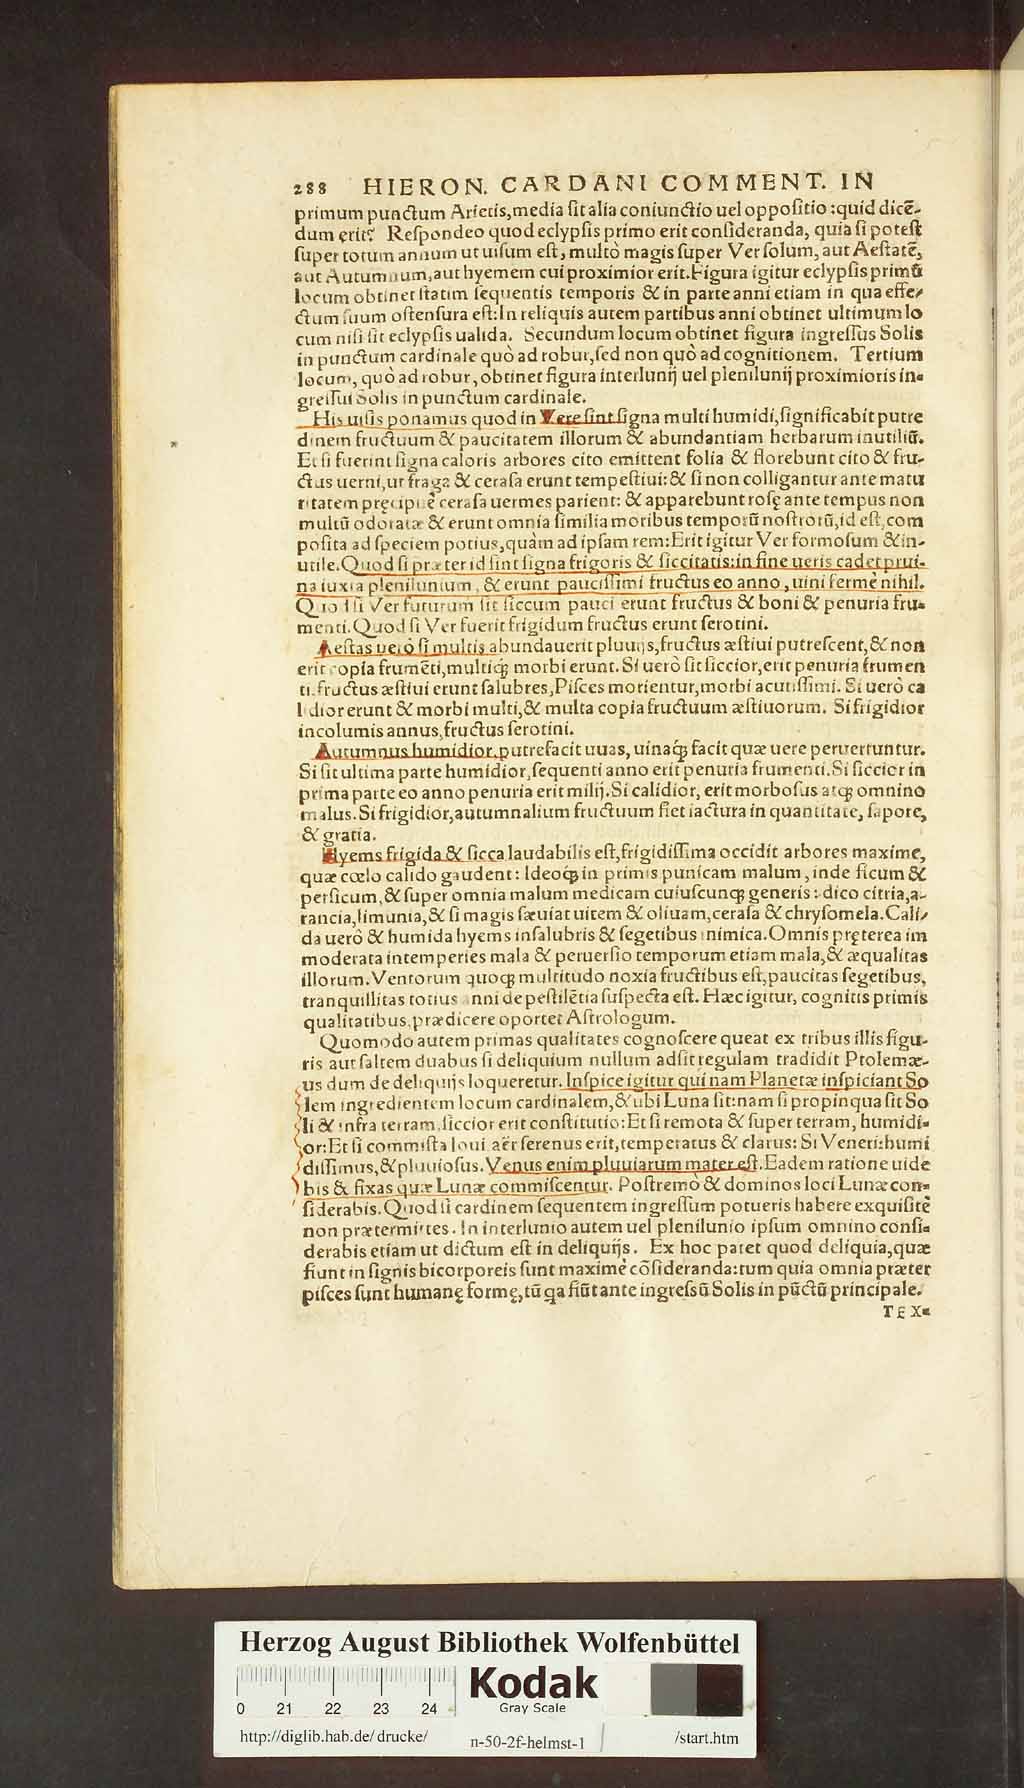 288 HIERON. CARDANI COMMENT. IN
primum punctum Arietis, media sit alia coniunctio uel oppositio: quid dicē-
dum erit? Respondeo quod eclypsis primo erit consideranda, quia si potest
super totum annum ut uisum est, multò magis super Ver solum, aut Aestatē,
aut Autumnum, aut hyemem cui proximior erit. Figura igitur eclypsis primū
locum obtinet statim sequentis temporis & in parte anni etiam in qua effe-
ctum suum ostensura est: In reliquis autem partibus anni obtinet ultimum lo
cum nisi sit eclypsis ualida. Secundum locum obtinet figura ingressus Solis
in punctum cardinale quò ad robur, sed non quò ad cognitionem. Tertium
locum, quò ad robur, obtinet figura interlunij uel plenilunij proximioris in-
gressui Solis in punctum cardinale.
His uisis ponamus quod in Vere sint signa multi humidi, significabit putre
dinem fructuum & paucitatem illorum & abundantiam herbarum inutiliū.
Et si fuerint signa caloris arbores cito emittent folia & florebunt cito & fru-
ctus uerni, ut fraga & cerasa erunt tempestiui: & si non colligantur ante matu
ritatem pręcipuè cerasa uermes parient: & apparebunt rosę ante tempus non
multū odoratæ & erunt omnia similia moribus temporū nostrorū, id est, com
posita ad speciem potius, quàm ad ipsam rem: Erit igitur Ver formosum & in-
utile. Quod si præter id sint signa frigoris & siccitatis: in fine ueris cadet prui-
na iuxta plenilunium, & erunt paucissimi fructus eo anno, uini fermè nihil.
Quod si Ver futurum sit siccum pauci erunt fructus & boni & penuria fru-
menti. Quod si Ver fuerit frigidum fructus erunt serotini.
Aestas uerò si multis abundauerit pluuijs, fructus æstiui putrescent, & non
erit copia frumēti, multiq́; morbi erunt. Si uerò sit siccior, erit penuria frumen
ti. fructus æstiui erunt salubres, Pisces morientur, morbi acutissimi. Si uerò ca
lidior erunt & morbi multi, & multa copia fructuum æstiuorum. Si frigidior
incolumis annus, fructus serotini.
Autumnus humidior, putrefacit uuas, uinaq́; facit quæ uere peruertuntur.
Si sit ultima parte humidior, sequenti anno erit penuria frumenti. Si siccior in
prima parte eo anno penuria erit milij. Si calidior, erit morbosus atq; omnino
malus. Si frigidior, autumnalium fructuum fiet iactura in quantitate, sapore,
& gratia.
Hyems frigida & sicca laudabilis est, frigidissima occidit arbores maxime,
quæ cœlo calido gaudent: Ideoq́; in primis punicam malum, inde ficum &
persicum, & super omnia malum medicam cuiuscunq; generis: dico citria, a-
rancia, limunia, & si magis sæuiat uitem & oliuam, cerasa & chrysomela. Cali-
da uerò & humida hyems insalubris & segetibus inimica. Omnis pręterea im
moderata intemperies mala & peruersio temporum etiam mala, & æqualitas
illorum. Ventorum quoq; multitudo noxia fructibus est, paucitas segetibus,
tranquillitas totius anni de pestilētia suspecta est. Hæc igitur, cognitis primis
qualitatibus, prædicere oportet Astrologum.
Quomodo autem primas qualitates cognoscere queat ex tribus illis figu-
ris aut saltem duabus si deliquium nullum adsit, regulam tradidit Ptolemæ-
us dum de deliquijs loqueretur. Inspice igitur qui nam Planetæ inspiciant So
lem ingredientem locum cardinalem, & ubi Luna sit: nam si propinqua sit So
li & infra terram, siccior erit constitutio: Et si remota & super terram, humidi-
or: Et si commista Ioui aër serenus erit, temperatus & clarus: Si Veneri: humi
dissimus, & pluuiosus. Venus enim pluuiarum mater est. Eadem ratione uide
bis & fixas quæ Lunæ commiscentur. Postremò & dominos loci Lunæ con-
siderabis. Quod si cardinem sequentem ingressum potueris habere exquisitè
non prætermittes. In interlunio autem uel plenilunio ipsum omnino consi-
derabis etiam ut dictum est in deliquijs. Ex hoc patet quod deliquia, quæ
fiunt in signis bicorporeis sunt maximè cōsideranda: tum quia omnia præter
pisces sunt humanę formę, tū qa fiūt ante ingressū Solis in pūctū principale.
TEX-
Herzog August Bibliothek Wolfenbüttel
Kodak
Gray Scale
0 21 22 23 24
http://diglib.hab.de/drucke/ n-50-2f-helmst-1 /start.htm